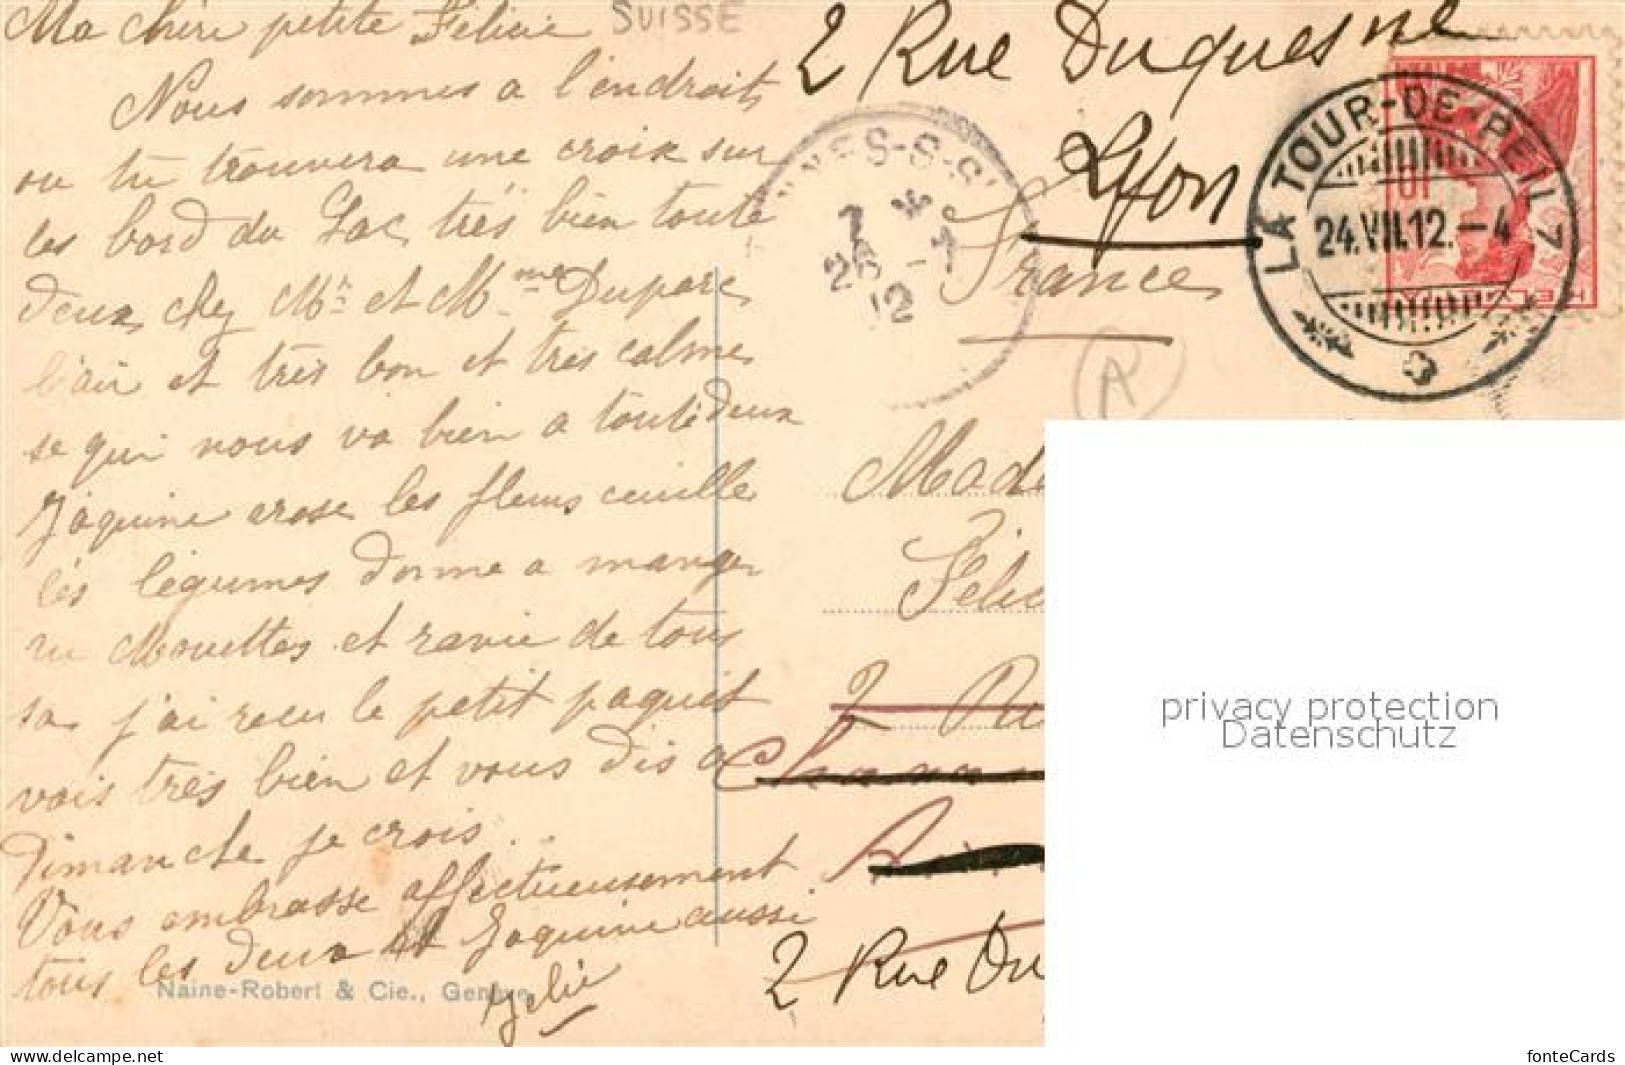 Ma chere petite Félicie
SUISSE
Nous sommes a l'endroit
ou tu trouvera une croix sur
les bord du Lac, très bien toute
deux chez Mr et Mme Duparc
l'air et très bon et très calme
se qui nous va bien a toute deux
Jaquine arose les fleurs ceuille
les legumes donne a manger
au Mouettes et ravie de tous
sa j'ai recu le petit paquet
vois très bien et vous dis a
Dimanche je crois.
Vous embrasse affectueusement
tous les deux et Jaquine aussi
Naine-Robert & Cie., Genève
2 Rue Duquesne
Lyon
France
LA TOUR-DE-PEILZ
24.VII.12.-4
S-S-S
7
26 -7
12
HELVETIA
10
R
Made
Félic
2
2 Rue Du
privacy protection
Datenschutz
www.delcampe.net
fonteCards